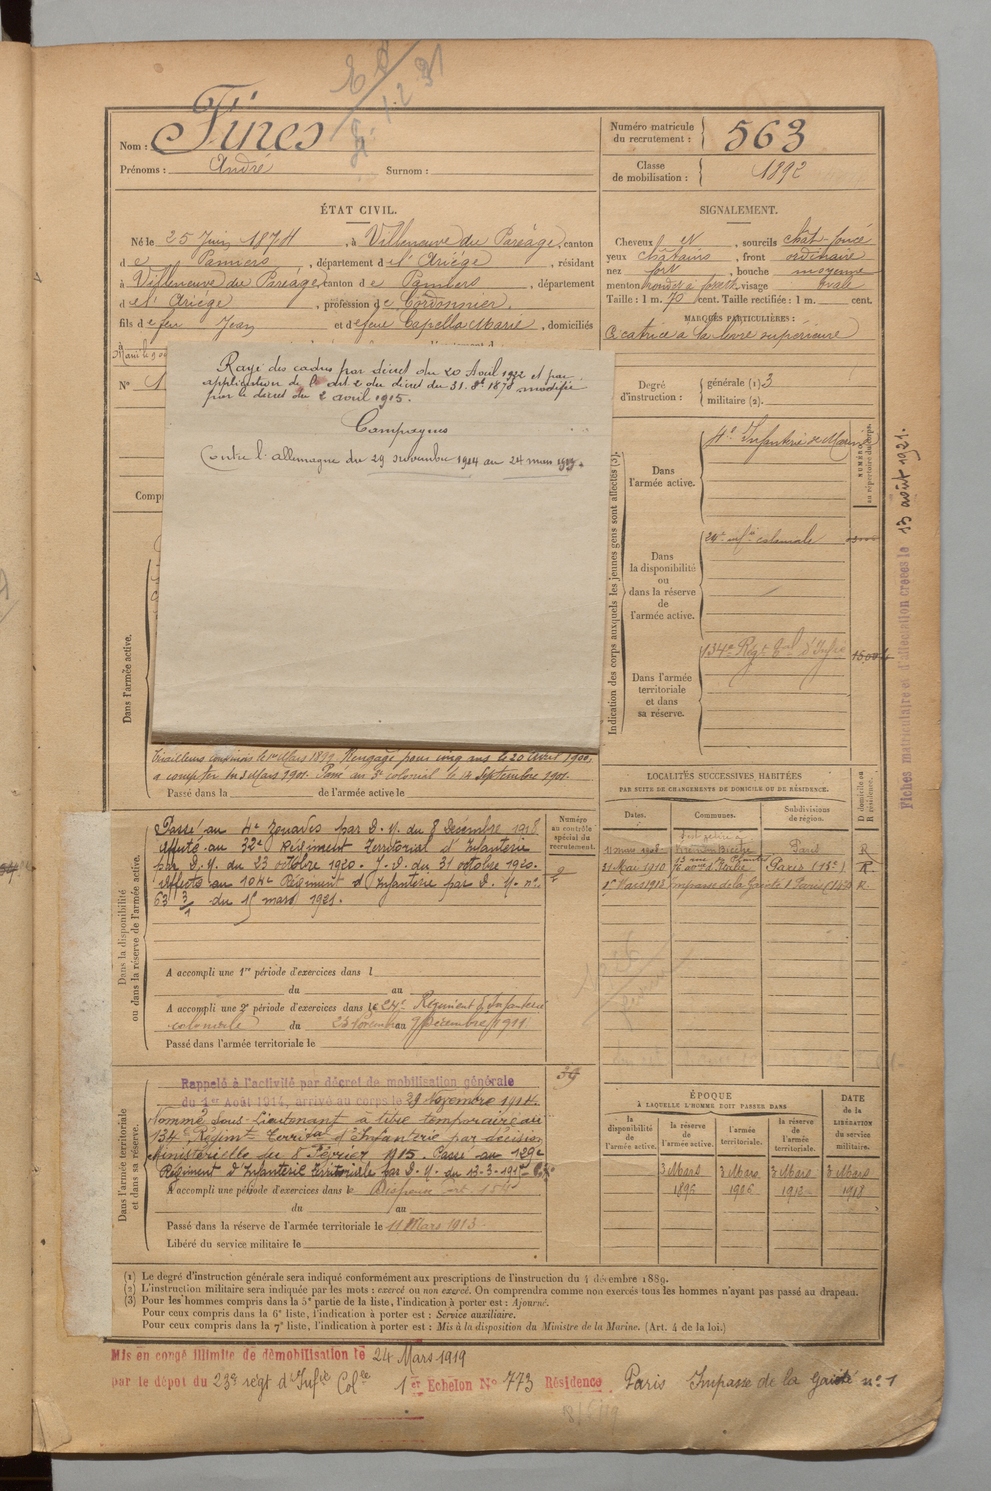 Nom : Fires
Prénoms : André Surnom :
Numéro matricule du recrutement : 563
Classe de mobilisation : 1892
ÉTAT CIVIL.
Né le 25 Juin 1874, à Villeneuve du Paréage, canton
de Pamiers, département de l'Ariège, résidant
à Villeneuve du Paréage, canton de Pamiers, département
de l'Ariège, profession de Cordonnier,
fils de feu Jean et de feue Capella Marie, domiciliés
SIGNALEMENT.
Cheveux et, sourcils chât-foncé
yeux châtains, front ordinaire
nez fort, bouche moyenne
menton rond à fossette visage ovale
Taille : 1 m. 70 cent. Taille rectifiée : 1 m. cent.
MARQUES PARTICULIÈRES :
Cicatrice à la lèvre supérieure
Rayé des cadres par décret du 20 Aout 1922 et par
application de l'art. 2 du décret du 31. 8t 1878 modifié
par le décret du 2 avril 1915.
Campagnes
Contre l'allemagne du 29 novembre 1914 au 24 mars 1919.
N° 1
Compt
Degré d'instruction : générale (1) 3
militaire (2).
Indication des corps auxquels les jeunes gens sont affectés (3).
NUMÉRO au répertoire du corps.
Dans l'armée active. 4e Infanterie de Marine
Dans la disponibilité ou dans la réserve de l'armée active. 24e infie coloniale
Dans l'armée territoriale et dans sa réserve. 134e Régt d'Infie
Fiches matriculaire et d'allocation créées le 13 août 1921.
Dans l'armée active.
Tirailleurs le 1er Mars 1899. Rengagé pour cinq ans le 20 Avril 1900,
à compter du 3 Mars 1901. Passé au 5e colonial le 14 Septembre 1901.
Passé dans la de l'armée active le
Dans la disponibilité ou dans la réserve de l'armée active.
Numéro au contrôle spécial du recrutement.
Passé au 4e zouaves par D. M. du 8 Décembre 1918.
Affecté au 32e Régiment Territorial d'Infanterie
par D. M. du 23 octobre 1920. J. O. du 31 octobre 1920.
Affecté au 104e Régiment d'Infanterie par D. M. n°
63 3/1 du 15 mars 1921.
A accompli une 1re période d'exercices dans l
du au
A accompli une 2e période d'exercices dans le 24e Régiment d'Infanterie
coloniale du 23 Novembre au 9 Décembre 1911
Passé dans l'armée territoriale le
LOCALITÉS SUCCESSIVES HABITÉES
PAR SUITE DE CHANGEMENTS DE DOMICILE OU DE RÉSIDENCE.
Dates. Communes. Subdivisions de région. D domicile ou R résidence.
11 mars 1908 Paris R
31 Mai 1910 Paris (13e) R.
1er Mars 1913 Impasse de la Gaîté 1 Paris (14e) R.
Dans l'armée territoriale et dans sa réserve.
Rappelé à l'activité par décret de mobilisation générale
du 1er Août 1914, arrivé au corps le 29 Novembre 1914.
Nommé Sous-Lieutenant à titre temporaire au
134e Régimt Territal d'Infanterie par décision
Ministérielle du 8 Février 1915. Passé au 129e
Régiment d'Infanterie Territoriale par D. M. du 13-3-1917
A accompli une période d'exercices dans l
du au
Passé dans la réserve de l'armée territoriale le 11 Mars 1913
Libéré du service militaire le
ÉPOQUE À LAQUELLE L'HOMME DOIT PASSER DANS
DATE de la LIBÉRATION du service militaire.
la disponibilité de l'armée active. la réserve de l'armée active. l'armée territoriale. la réserve de l'armée territoriale.
3 Mars 3 Mars 3 Mars 3 Mars
1895 1905 1912 1918
(1) Le degré d'instruction générale sera indiqué conformément aux prescriptions de l'instruction du 4 décembre 1889.
(2) L'instruction militaire sera indiquée par les mots : exercé ou non exercé. On comprendra comme non exercés tous les hommes n'ayant pas passé au drapeau.
(3) Pour les hommes compris dans la 5e partie de la liste, l'indication à porter est : Ajourné.
Pour ceux compris dans la 6e liste, l'indication à porter est : Service auxiliaire.
Pour ceux compris dans la 7e liste, l'indication à porter est : Mis à la disposition du Ministre de la Marine. (Art. 4 de la loi.)
Mis en congé illimité de démobilisation le 24 Mars 1919
par le dépôt du 23e régt d'Infie Colle 1er Echelon N° 773 Résidence Paris Impasse de la Gaieté n° 1